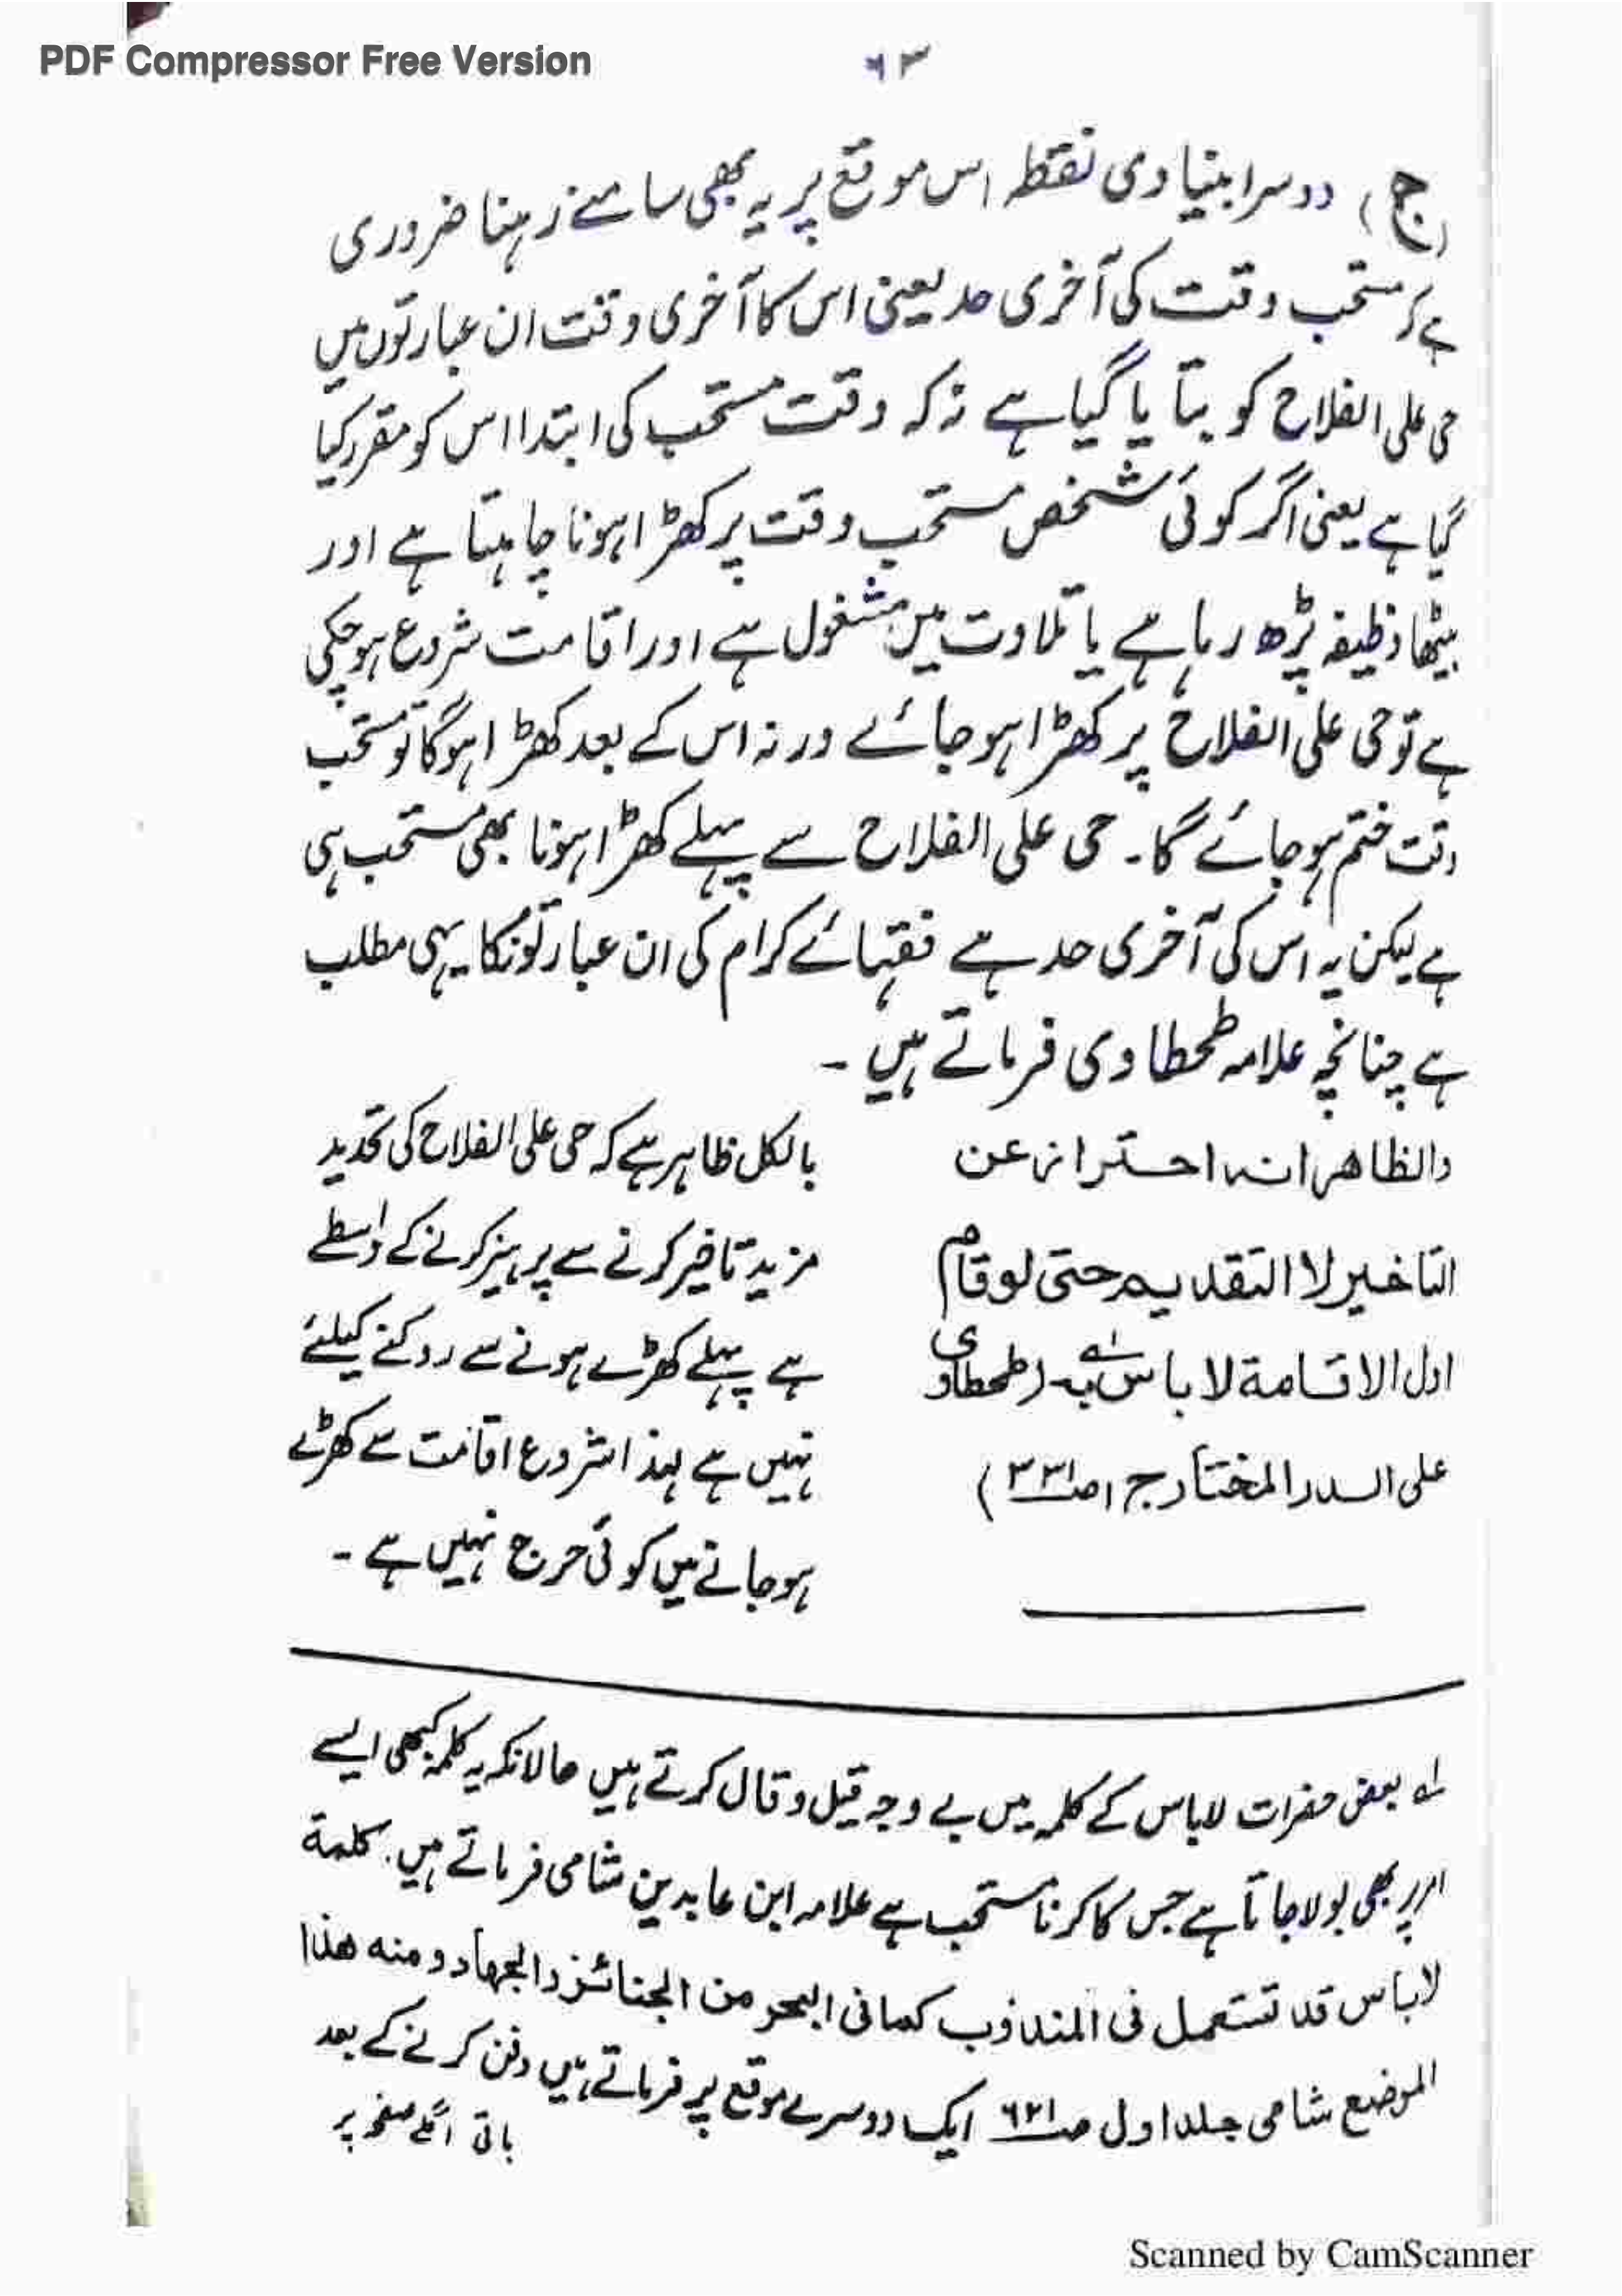 PDF Compressor Free Version
۶۳
(ج) دوسرا بنیادی نقطہ اس موقع پر یہ بھی سامنے رہنا ضروری
ہے کہ مستحب وقت کی آخری حد یعنی اس کا آخری وقت ان عبارتوں میں
حی علی الفلاح کو بتایا گیا ہے نہ کہ وقت مستحب کی ابتدا اس کو مقرر کیا
گیا ہے یعنی اگر کوئی شخص مستحب وقت پر کھڑا ہونا چاہتا ہے اور
بیٹھا وظیفہ پڑھ رہا ہے یا تلاوت میں مشغول ہے اور اقامت شروع ہو چکی
ہے تو حی علی الفلاح پر کھڑا ہو جائے ورنہ اس کے بعد کھڑا ہوگا تو مستحب
وقت ختم ہو جائے گا۔ حی علی الفلاح سے پہلے کھڑا ہونا بھی مستحب ہی
ہے لیکن یہ اس کی آخری حد ہے فقہائے کرام کی ان عبارتونکا یہی مطلب
ہے چنانچہ علامہ طحطاوی فرماتے ہیں ۔
والظاهر انہ احتراز عن
التاخیر لا التقدیم حتی لو قام
اول الاقامة لا باس بہ لہ (طحطاوی
علی الدر المختار ج ۱ ص ۳۳۱)
بالکل ظاہر ہے کہ حی علی الفلاح کی تحدید
مزید تاخیر کرنے سے پرہیز کرنے کے واسطے
ہے پہلے کھڑے ہونے سے روکنے کیلئے
نہیں ہے لہذا شروع اقامت سے کھڑے
ہو جانے میں کوئی حرج نہیں ہے ۔
لہ بعض حضرات لاباس کے کلمہ میں بے وجہ قیل و قال کرتے ہیں حالانکہ یہ کلمہ کبھی ایسے
امر پر بھی بولا جاتا ہے جس کا کرنا مستحب ہے علامہ ابن عابدین شامی فرماتے ہیں۔ کلمة
لا باس قد تستعمل فی المندوب کما فی البحر من الجنائز والجہاد و منه هذا
الموضع شامی جلد اول ص ۶۲۱ ایک دوسرے موقع پر فرماتے ہیں دفن کرنے کے بعد
باقی اگلے صفحہ پر
Scanned by CamScanner